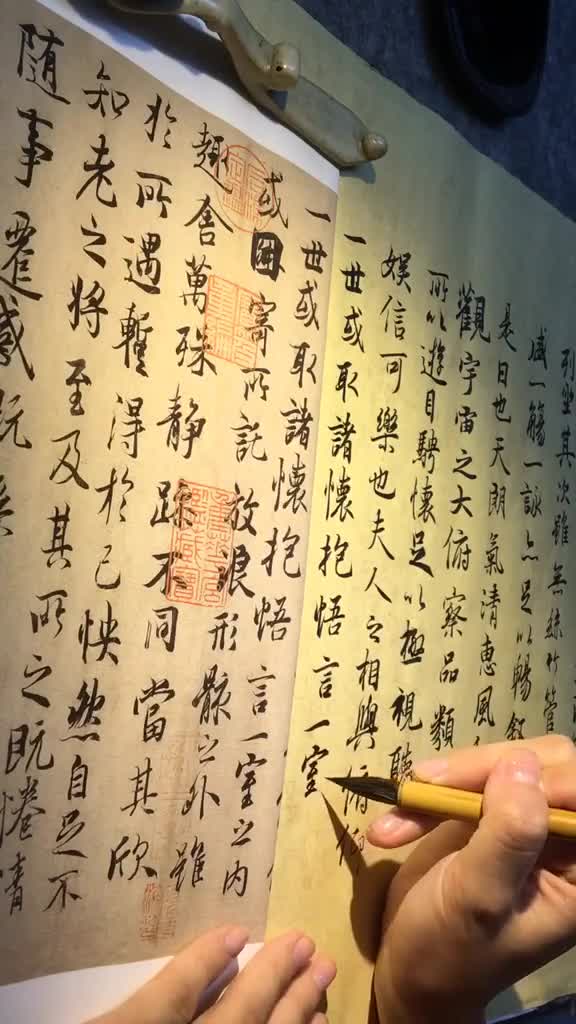 列坐其次雖無絲竹管
盛一觴一詠亦足以暢叙
是日也天朗氣清惠風
觀宇宙之大俯察品類
所以遊目騁懷足以極視聽
娛信可樂也夫人之相與俯仰
一世或取諸懷抱悟言一室
一世或取諸懷抱悟言一室之内
或因寄所託放浪形骸之外雖
趣舍萬殊静躁不同當其欣
於所遇蹔得於己怏然自足不
知老之將至及其所之既惓情
随事遷感慨係